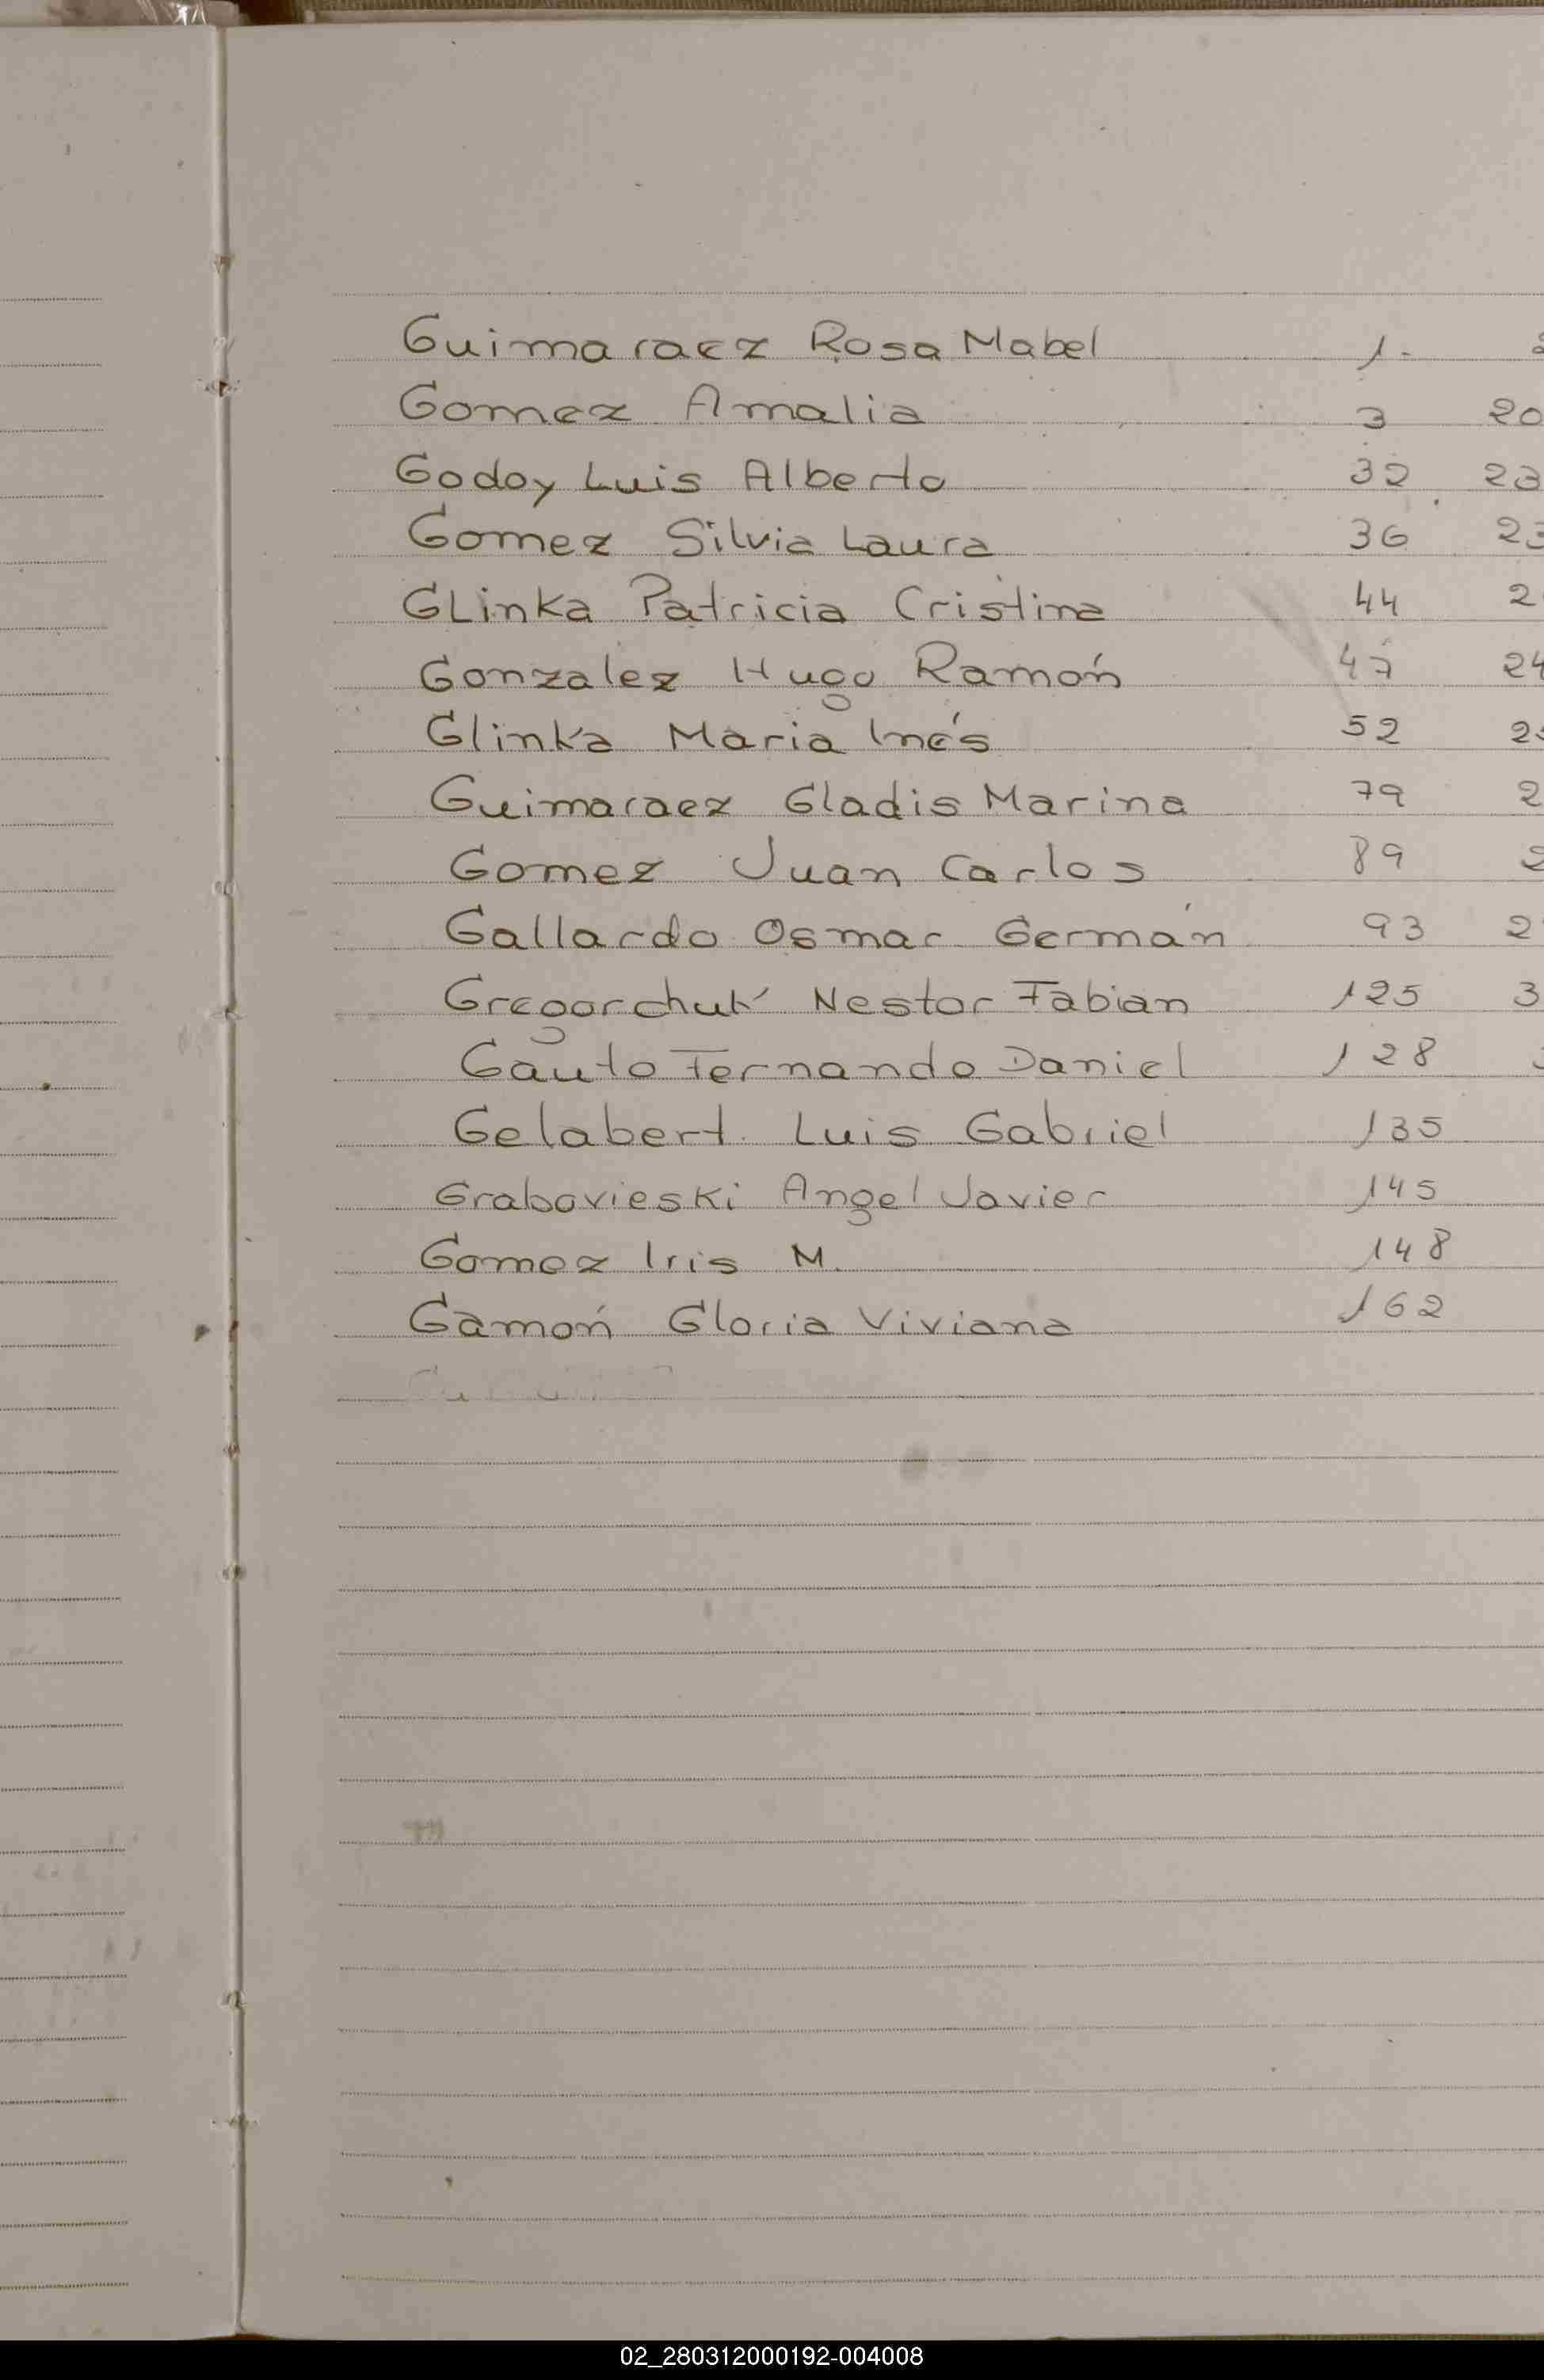 Guimaraez Rosa Mabel 1.
Gomez Amalia 3 20
Godoy Luis Alberto 32 23
Gomez Silvia Laura 36 23
GLinka Patricia Cristina 44 2
Gonzalez Hugo Ramón 47 24
Glinka Maria Inés 52 2
Guimaraez Gladis Marina 79 2
Gomez Juan Carlos 89 2
Gallardo Osmar Germán 93 2
Gregorchuk Nestor Fabian 125 3
Gauto Fernando Daniel 128
Gelabert Luis Gabriel 135
Grabovieski Angel Javier 145
Gomez Iris M. 148
Gamón Gloria Viviana 162
02_280312000192-004008